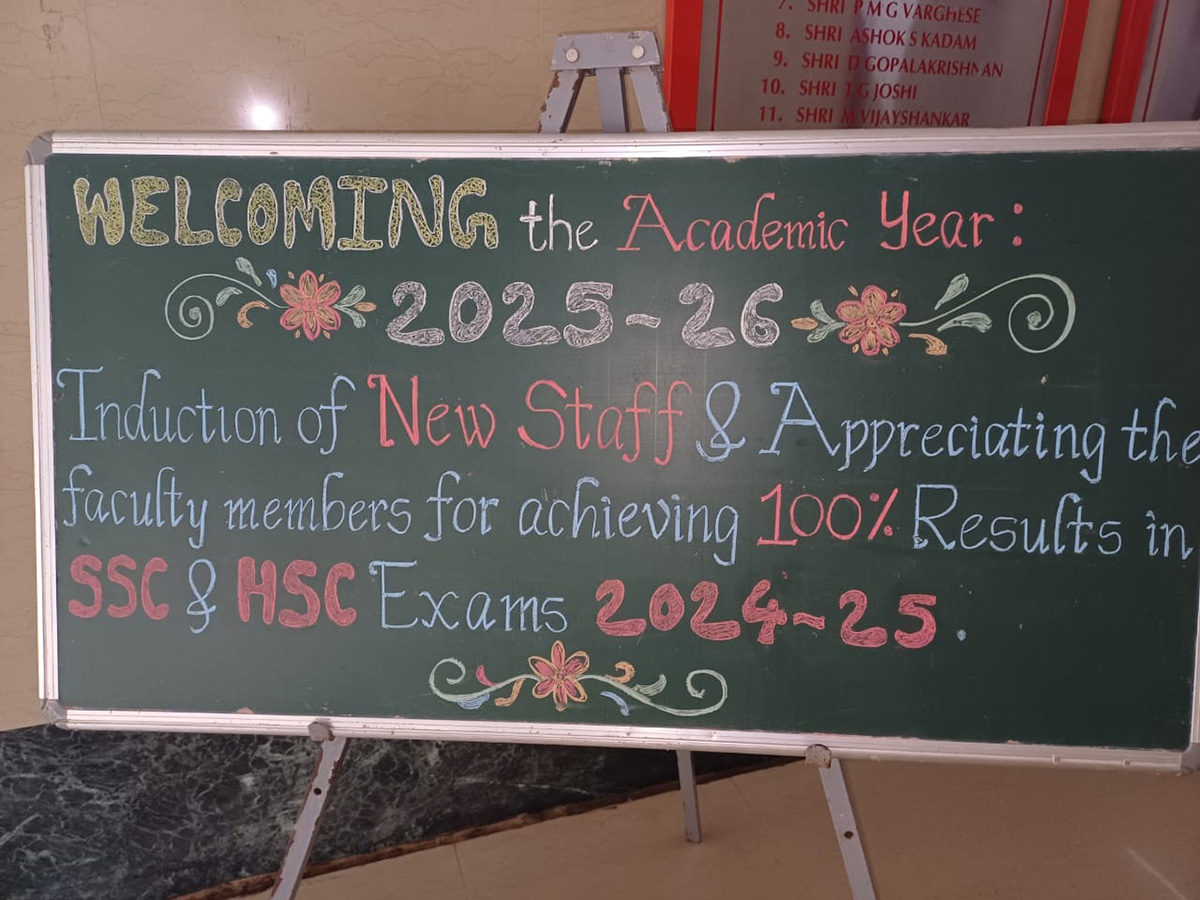 7. SHRI P M G VARGHESE
8. SHRI ASHOK S KADAM
9. SHRI D GOPALAKRISHNAN
10. SHRI T G JOSHI
11. SHRI M VIJAYSHANKAR
WELCOMING the Academic Year:
2025-26
Induction of New Staff & Appreciating the
faculty members for achieving 100% Results in
SSC & HSC Exams 2024-25.